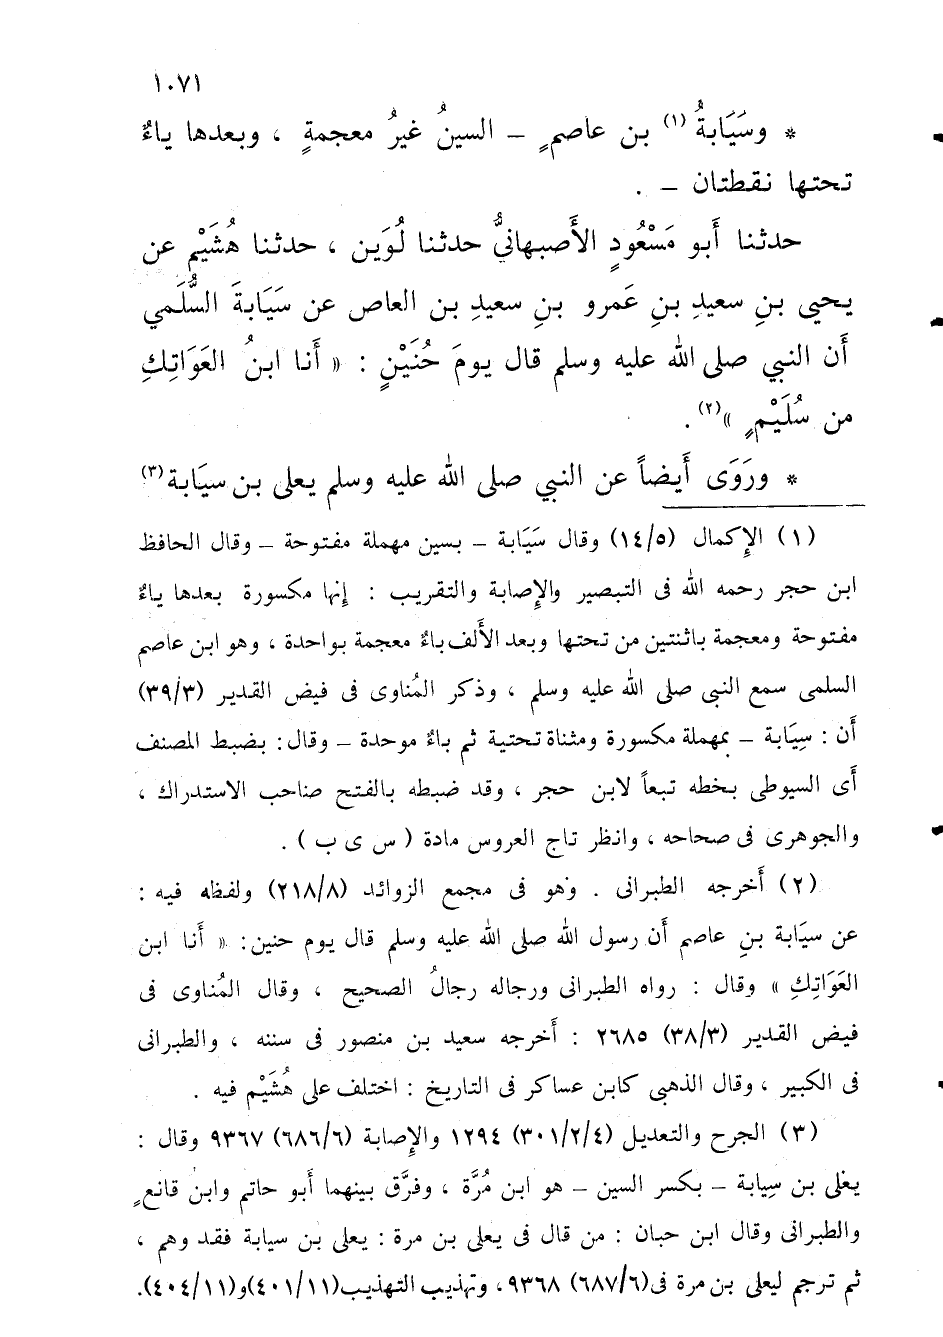 ١٠٧١
* وسَيَابةُ (١) بن عاصمٍ – السينُ غيرُ معجمةٍ ، وبعدها ياءٌ
تحتها نقطتان – .
حدثنا أَبو مَسْعُودٍ الأَصبهانيُّ حدثنا لُوَين ، حدثنا هُشَيْم عن
يحيى بنِ سعيدِ بنِ عَمرو بنِ سعيدِ بن العاص عن سَيَابةَ السُّلَمي
أَن النبي صلى الله عليه وسلم قال يومَ حُنَيْنٍ : « أَنا ابنُ العَوَاتِكِ
من سُلَيْمٍ »(٢) .
* ورَوَى أَيضاً عن النبي صلى الله عليه وسلم يعلى بن سيَابة (٣)
(١) الإكمال (١٤/٥) وقال سَيَابة – بسين مهملة مفتوحة – وقال الحافظ
ابن حجر رحمه الله فى التبصير والإصابة والتقريب : إنها مكسورة بعدها ياءٌ
مفتوحة ومعجمة باثنتين من تحتها وبعد الأَلف باءٌ معجمة بواحدة ، وهو ابن عاصم
السلمى سمع النبى صلى الله عليه وسلم ، وذكر المُناوى فى فيض القدير (٣٩/٣)
أَن : سِيَابة – بمهملة مكسورة ومثناة تحتية ثم باءٌ موحدة – وقال : بضبط المصنف
أى السيوطى بخطه تبعاً لابن حجر ، وقد ضبطه بالفتح صاحب الاستدراك ،
والجوهرى فى صحاحه ، وانظر تاج العروس مادة ( س ى ب ) .
(٢) أَخرجه الطبرانى . وهو فى مجمع الزوائد (٢١٨/٨) ولفظه فيه :
عن سيَابة بنِ عاصم أَن رسول الله صلى الله عليه وسلم قال يوم حنين : « أَنا ابن
العَوَاتِكِ » وقال : رواه الطبرانى ورجاله رجالُ الصحيح ، وقال المُناوى فى
فيض القدير (٣٨/٣) ٢٦٨٥ : أَخرجه سعيد بن منصور فى سننه ، والطبرانى
فى الكبير ، وقال الذهبى كابن عساكر فى التاريخ : اختلف على هُشَيْم فيه .
(٣) الجرح والتعديل (٣٠١/٢/٤) ١٢٩٤ والإصابة (٦٨٦/٦) ٩٣٦٧ وقال :
يعلى بن سِيابة – بكسر السين – هو ابن مُرَّة ، وفرَّق بينهما أَبو حاتم وابن قانعٍ
والطبرانى وقال ابن حبان : من قال فى يعلى بن مرة : يعلى بن سيابة فقد وهم ،
ثم ترجم ليعلى بن مرة فى (٦٨٧/٦) ٩٣٦٨ ، وتهذيب التهذيب (٤٠١/١١) و(٤٠٤/١١).